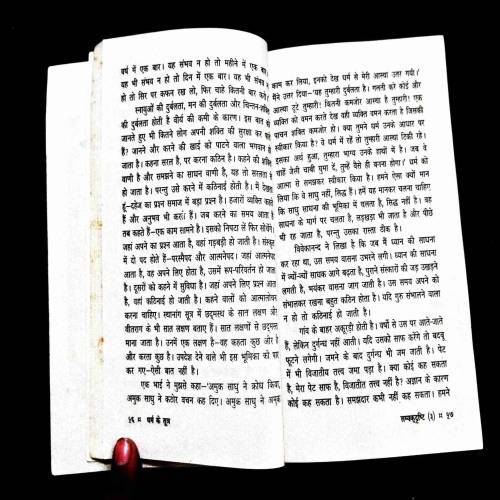 वर्ष में एक बार। यह संभव न हो तो महीने में एक बार।
यह भी संभव न हो तो दिन में एक बार। यह भी संभव न
हो तो सिर पर कफन रख लो, फिर चाहे कितनी बार करो।
स्नायुओं की दुर्बलता, मन की दुर्बलता और चिन्तन-शक्ति
की दुर्बलता होती है वीर्य की कमी के कारण। इस बात को
जानते हुए भी कितने लोग अपनी शक्ति की सुरक्षा कर पाते
हैं? जानने और करने की खाई को पाटने वाला भगवान् बन
जाता है। कहना सरल है, पर करना कठिन है। कहने की शक्ति
वाणी है और समझने का साधन वाणी है, यह तो सरलता से
हो जाता है। परन्तु उसे करने में कठिनाई होती है। मैं देखता
हूं–दहेज का प्रश्न समाज में बड़ा प्रश्न है। हजारों व्यक्ति कहते
हैं और अनुभव भी करते हैं। जब करने का समय आता है
तब कहते हैं–एक काम सामने है। इसको निपटा लें फिर सोचेंगे।
जहां अपने का प्रश्न आता है, वहां गड़बड़ी हो जाती है। संस्कृत
में दो पद होते हैं–परस्मैपद और आत्मनेपद। जहां आत्मनेपद
आता है, वह अपने लिए होता है, उसमें रूप-परिवर्तन हो जाता
है। दूसरों को कहने में सुविधा है। जहां अपने लिए प्रश्न आता
है, वहां कठिनाई हो जाती है। कहने वालों को आत्मालोचन
करना चाहिए। स्थानांग सूत्र में छद्मस्थ के सात लक्षण और
वीतराग के भी सात लक्षण बताए हैं। सात लक्षणों से छद्मस्थ
माना जाता है। उनमें एक लक्षण है–वह कहता कुछ और है
और करता कुछ है। उपदेश देने वाले भी इस भूमिका को पार
कर गए–ऐसी बात नहीं है।
एक भाई ने मुझसे कहा–'अमुक साधु ने क्रोध किया,
अमुक साधु ने कठोर वचन कह दिए। अमुक साधु ने अमुक
५६ = धर्म के सूत्र
काम कर लिया, इनको देख धर्म से मेरी आस्था उतर गयी।'
मैंने उत्तर दिया–'यह तुम्हारी दुर्बलता है। गलती करे कोई और
आस्था टूटे तुम्हारी। कितनी कमजोर आस्था है तुम्हारी! एक
व्यक्ति को वमन करते देख वही व्यक्ति वमन करता है जिसकी
पाचन शक्ति कमजोर हो। क्या तुमने धर्म उनके आधार पर
स्वीकार किया है? वे धर्म में रहें तो तुम्हारी आस्था टिकी रहे।
इसका अर्थ हुआ, तुम्हारा भाग्य उनके हाथों में है। जब वे
चाहें जैसी चाबी घुमा दें, तुम्हें वैसे ही बनना होगा।' धर्म को
आत्मा से समझकर स्वीकार किया है। हमने ऐसा क्यों मान
लिया कि वे साधु नहीं, सिद्ध हैं। हमें यह मानकर चलना चाहिए
कि साधु साधना की भूमिका में चलता है, सिद्ध नहीं है। वह
साधना के मार्ग पर चलता है, लड़खड़ा भी जाता है और पीछे
भी रह जाता है, परन्तु उसका रास्ता ठीक है।
विवेकानन्द ने लिखा है कि जब मैं ध्यान की साधना
कर रहा था, उस समय वासना उभरने लगी। ध्यान की साधना
में ज्यों-ज्यों साधक आगे बढ़ता है, पुराने संस्कारों की जड़ उखड़ने
लगती है, भयंकर वासना जाग जाती है। उस समय अपने को
संभालकर रखना बहुत कठिन होता है। यदि गुरु संभालने वाला
न हो तो कठिनाई हो जाती है।
गांव के बाहर अकूरड़ी होती है। वर्षों से उस पर आते-जाते
हैं, लेकिन दुर्गन्ध नहीं आती। यदि उसको साफ करेंगे तो बदबू
फूटने लगेगी। जमने के बाद दुर्गन्ध भी जम जाती है। पेट
में भी विजातीय तत्त्व जमा पड़ा है। क्या कोई कह सकता
है, मेरा पेट साफ है, विजातीत तत्त्व नहीं है? अज्ञान के कारण
कोई कह सकता है। समझदार कभी नहीं कह सकता। हमने
सम्यक्दृष्टि (२) = ५७